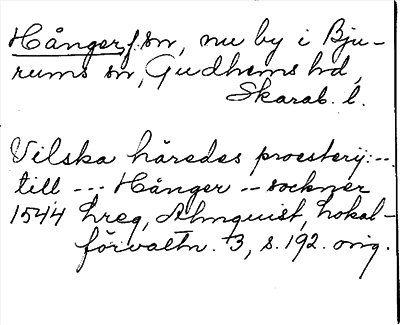 Hånger, f. sn, nu by i Bju-
rums sn, Gudhems hd,
Skarab. l.
Vilska häredes proesterij:--
till --- Hånger -- sockner
1544 hreg, Almquist, Lokal-
förvaltn. 3, s. 192. orig.